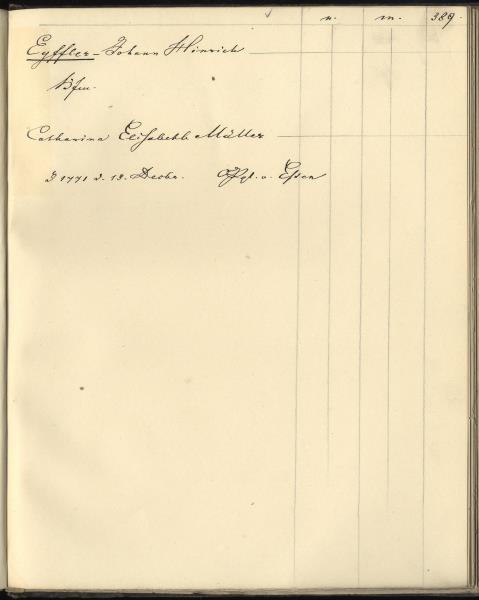 n. m. 389.
Eyffler - Johann Hinrich
Catharina Elisabeth Müller
1771 d. 13. Decbr. v. Essen